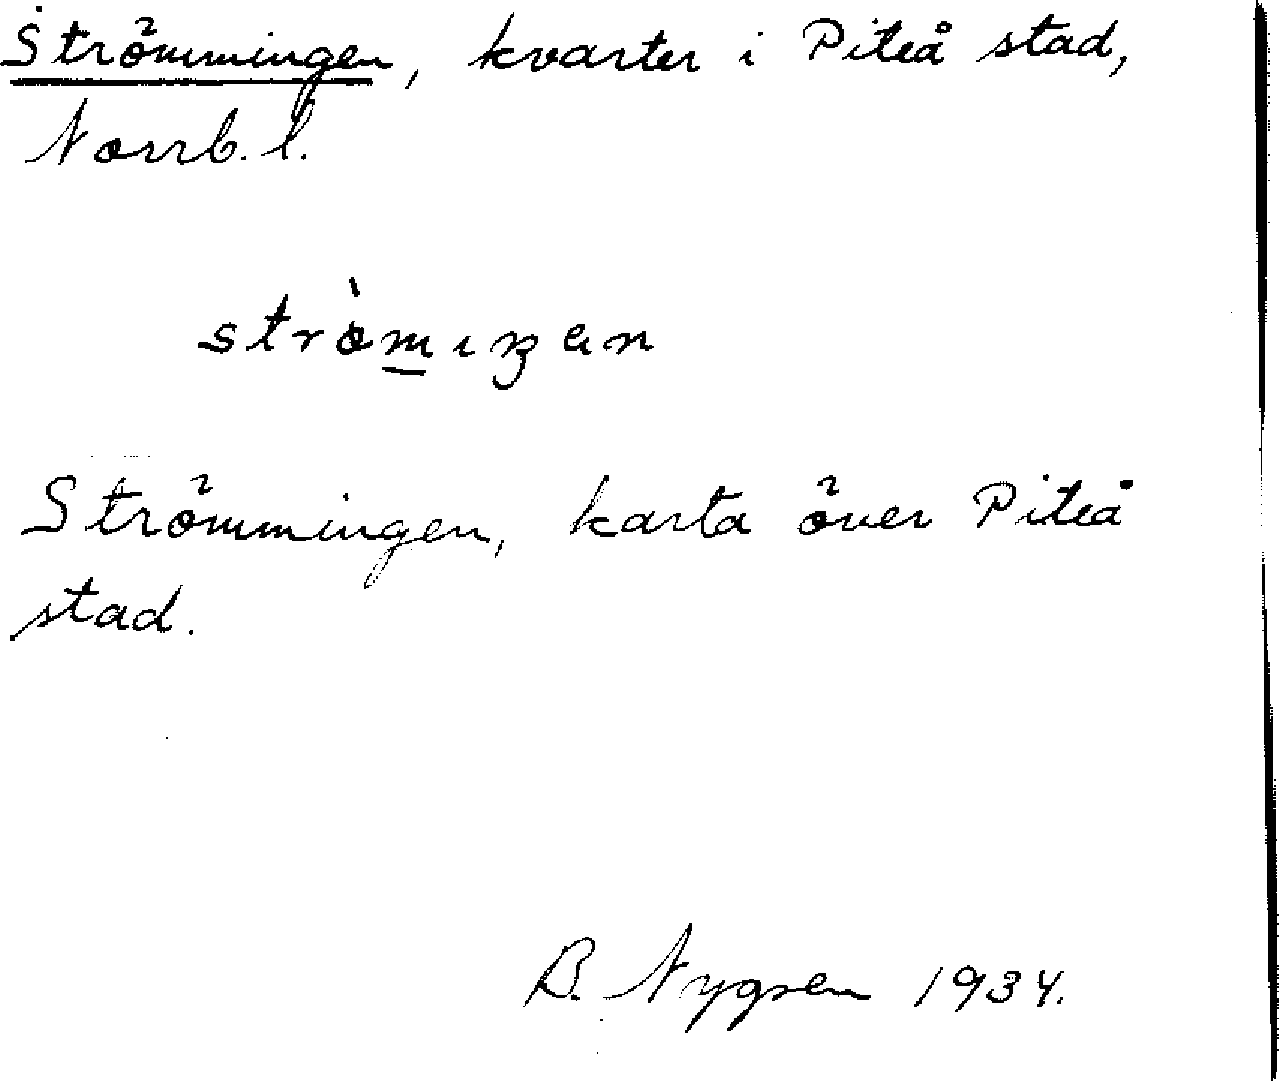 Strömmingen, kvarter i Piteå stad,
Norrb. l.
strò̀mıŋen
Strömmingen, karta över Piteå
stad.
B. Nygren 1934.